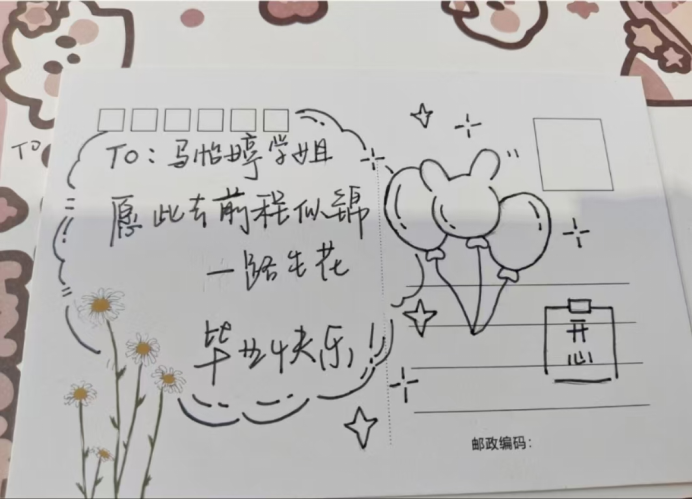 TO
TO：马怡婷学姐
愿此去前程似锦
一路生花
毕业快乐！
开
心
邮政编码：